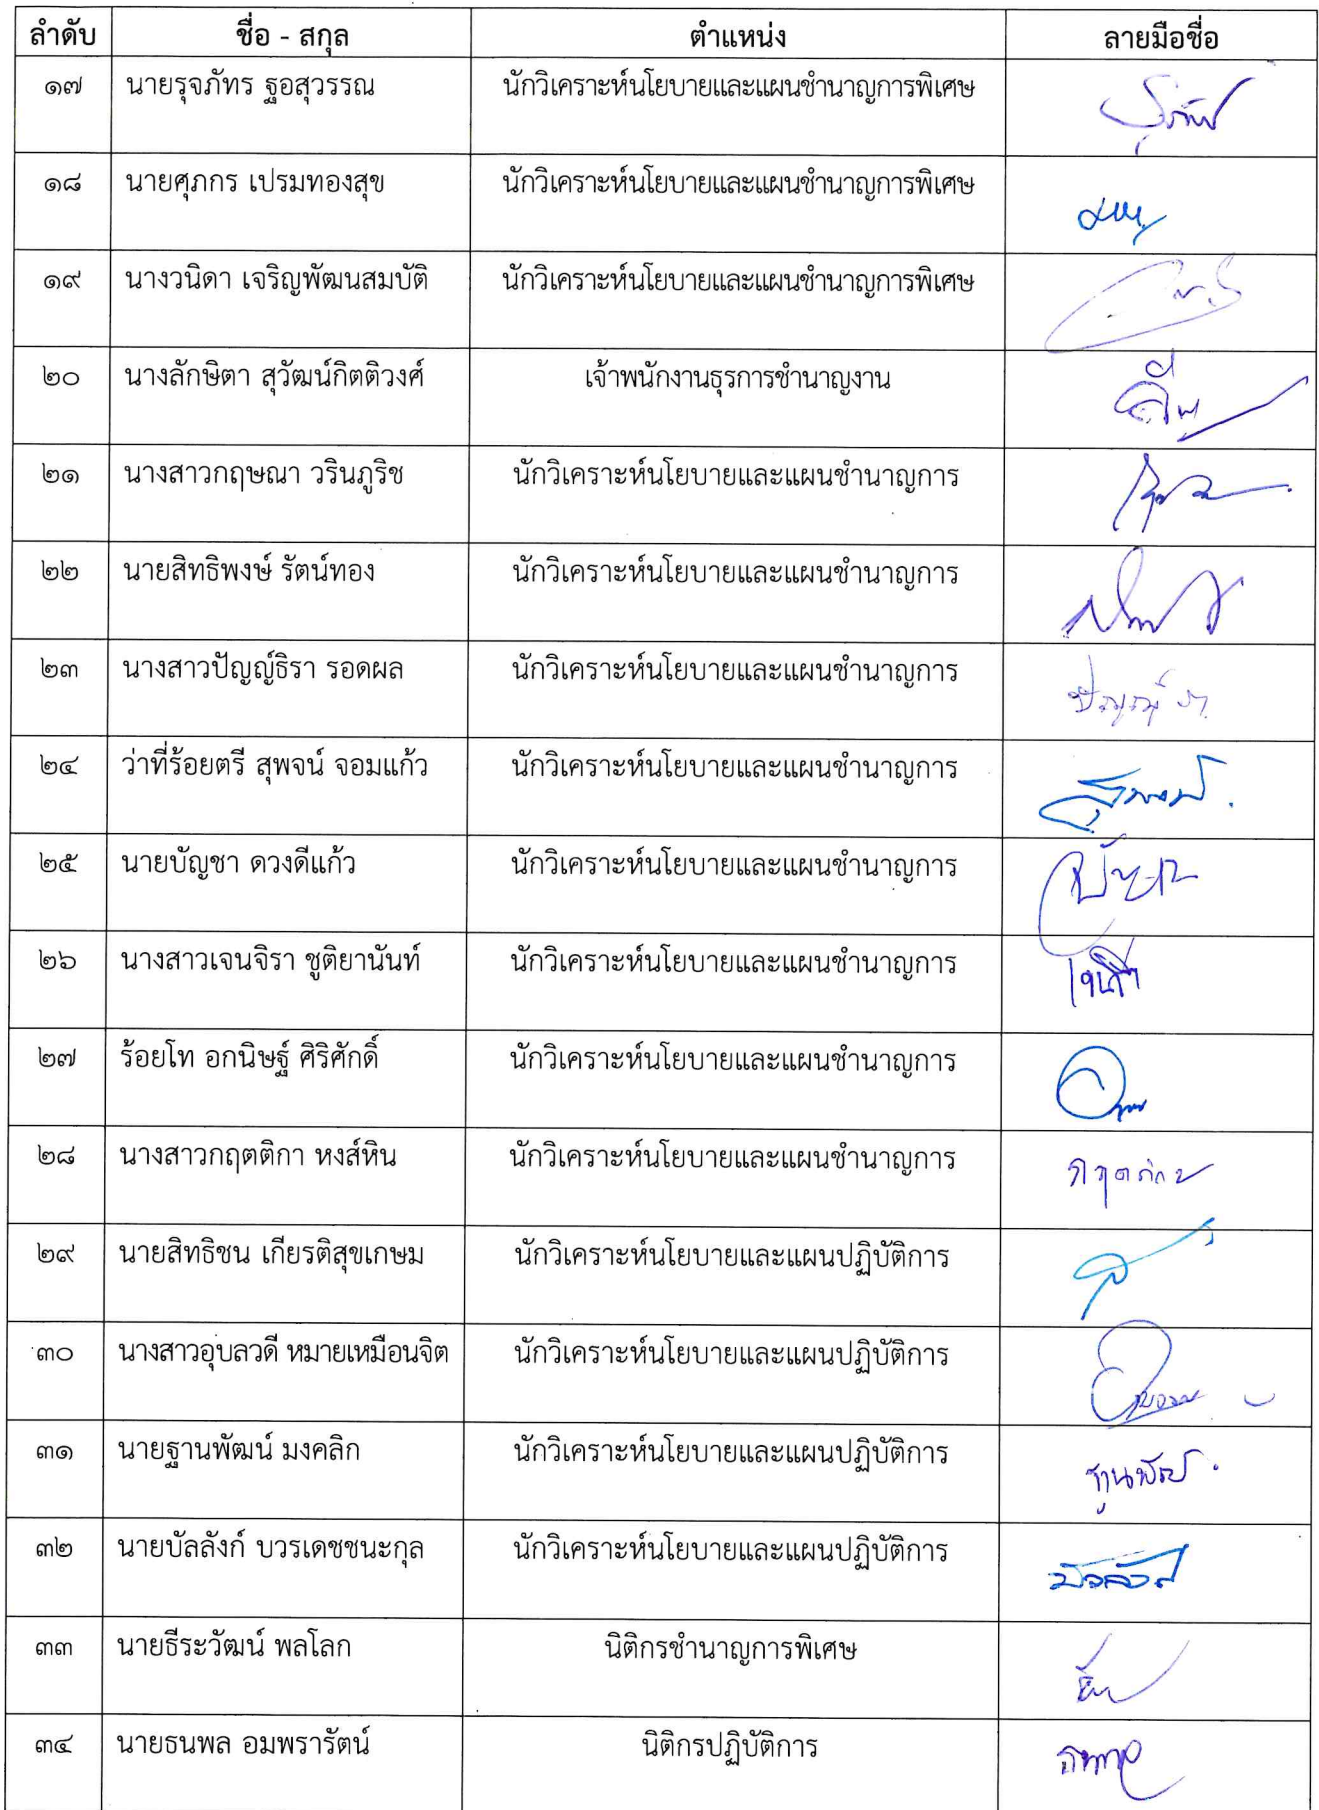 ลำดับ ชื่อ - สกุล ตำแหน่ง ลายมือชื่อ
๑๗ นายรุจภัทร ฐอสุวรรณ นักวิเคราะห์นโยบายและแผนชำนาญการพิเศษ
๑๘ นายศุภกร เปรมทองสุข นักวิเคราะห์นโยบายและแผนชำนาญการพิเศษ
๑๙ นางวนิดา เจริญพัฒนสมบัติ นักวิเคราะห์นโยบายและแผนชำนาญการพิเศษ
๒๐ นางลักษิตา สุวัฒน์กิตติวงศ์ เจ้าพนักงานธุรการชำนาญงาน
๒๑ นางสาวกฤษณา วรินภูริช นักวิเคราะห์นโยบายและแผนชำนาญการ
๒๒ นายสิทธิพงษ์ รัตน์ทอง นักวิเคราะห์นโยบายและแผนชำนาญการ
๒๓ นางสาวปัญญ์ธิรา รอดผล นักวิเคราะห์นโยบายและแผนชำนาญการ
๒๔ ว่าที่ร้อยตรี สุพจน์ จอมแก้ว นักวิเคราะห์นโยบายและแผนชำนาญการ
๒๕ นายบัญชา ดวงดีแก้ว นักวิเคราะห์นโยบายและแผนชำนาญการ
๒๖ นางสาวเจนจิรา ชูติยานันท์ นักวิเคราะห์นโยบายและแผนชำนาญการ
๒๗ ร้อยโท อกนิษฐ์ ศิริศักดิ์ นักวิเคราะห์นโยบายและแผนชำนาญการ
๒๘ นางสาวกฤตติกา หงส์หิน นักวิเคราะห์นโยบายและแผนชำนาญการ
๒๙ นายสิทธิชน เกียรติสุขเกษม นักวิเคราะห์นโยบายและแผนปฏิบัติการ
๓๐ นางสาวอุบลวดี หมายเหมือนจิต นักวิเคราะห์นโยบายและแผนปฏิบัติการ
๓๑ นายฐานพัฒน์ มงคลิก นักวิเคราะห์นโยบายและแผนปฏิบัติการ
๓๒ นายบัลลังก์ บวรเดชชนะกุล นักวิเคราะห์นโยบายและแผนปฏิบัติการ
๓๓ นายธีระวัฒน์ พลโลก นิติกรชำนาญการพิเศษ
๓๔ นายธนพล อมพรารัตน์ นิติกรปฏิบัติการ